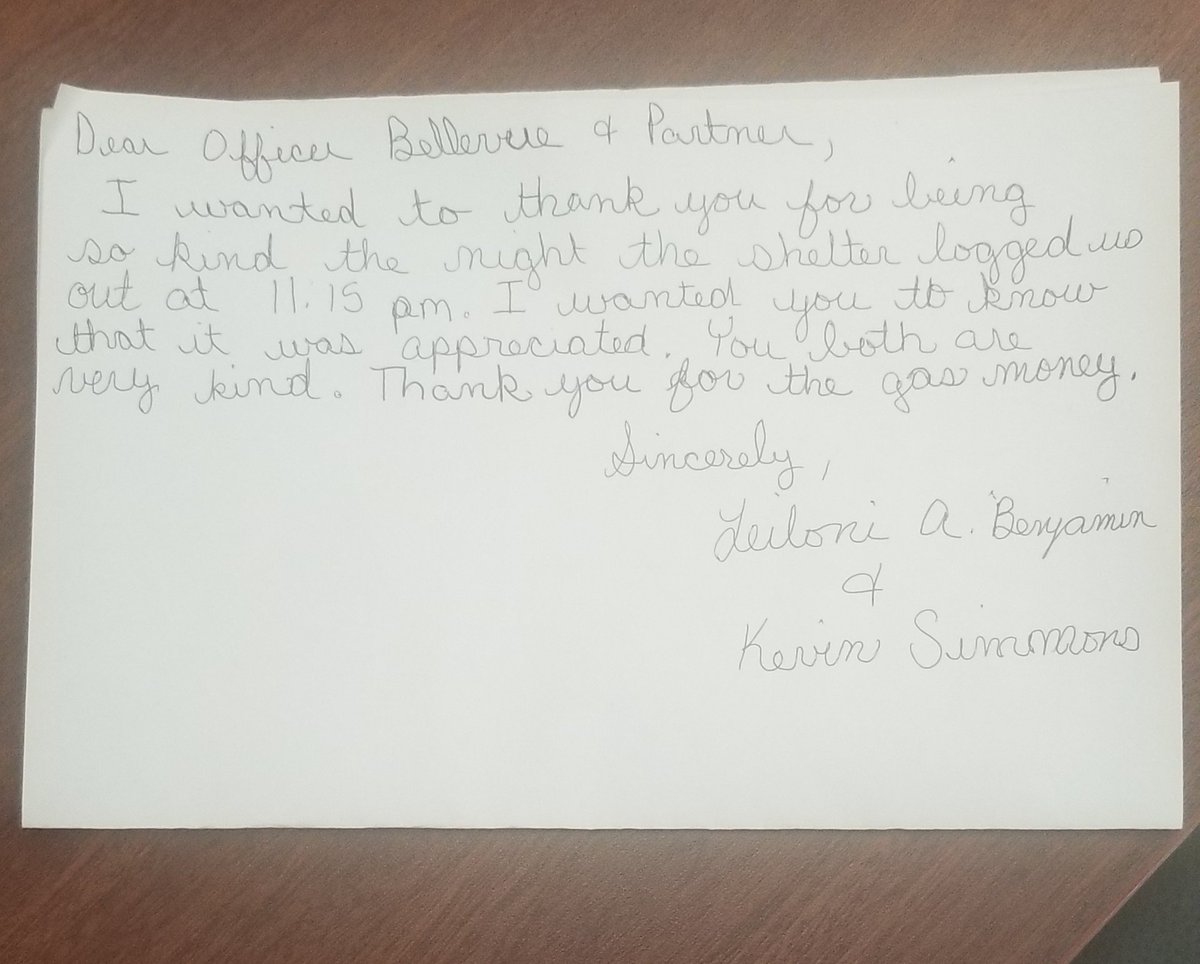 Dear Officer Bellevue & Partner,
I wanted to thank you for being
so kind the night the shelter logged us
out at 11:15 pm. I wanted you to know
that it was appreciated. You both are
very kind. Thank you for the gas money.
Sincerely,
Leiloni A. Benjamin
&
Kevin Simmons